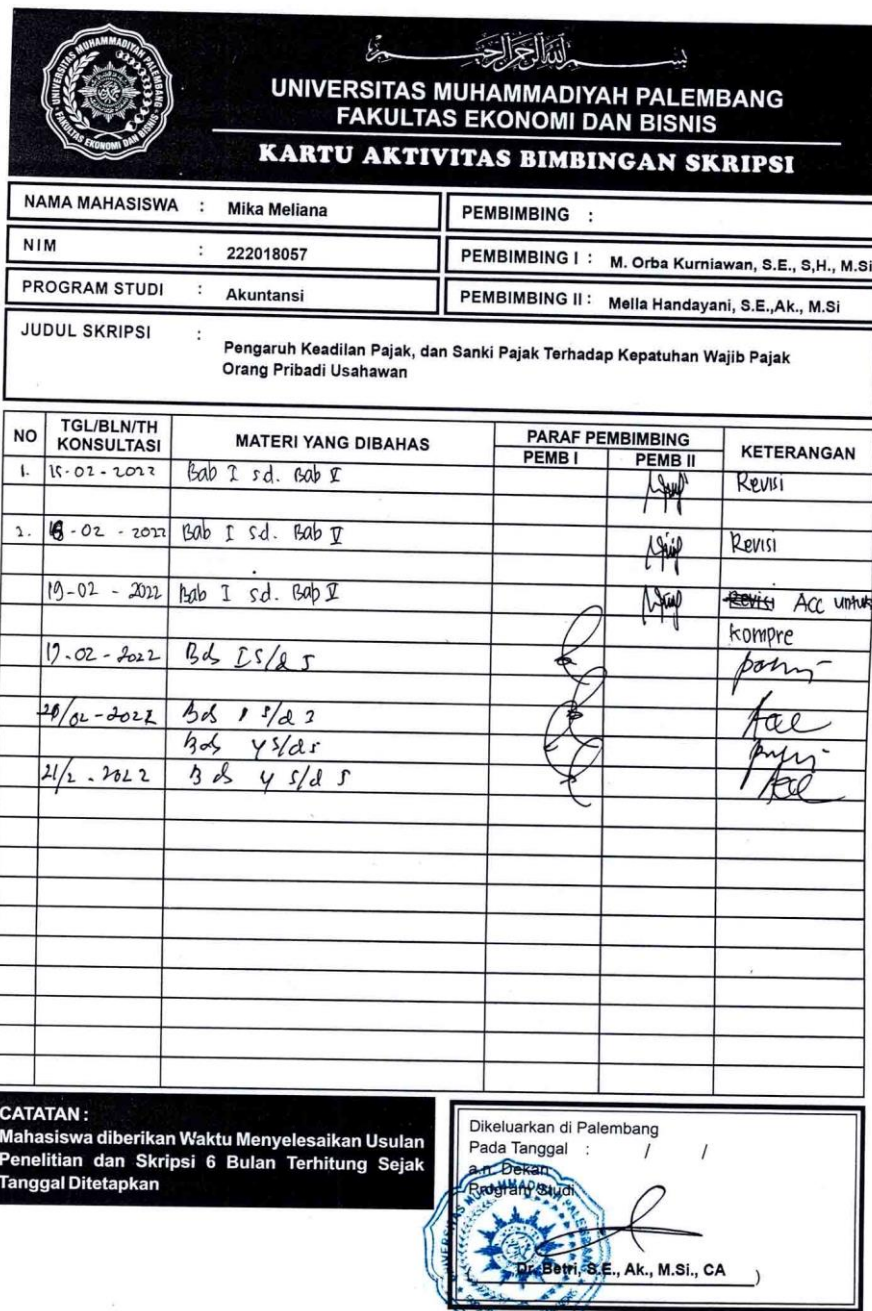 UNIVERSITAS MUHAMMADIYAH PALEMBANG
FAKULTAS EKONOMI DAN BISNIS
بسم الله الرحمن الرحيم
UNIVERSITAS MUHAMMADIYAH PALEMBANG
FAKULTAS EKONOMI DAN BISNIS
KARTU AKTIVITAS BIMBINGAN SKRIPSI
NAMA MAHASISWA : Mika Meliana
PEMBIMBING :
NIM : 222018057
PEMBIMBING I : M. Orba Kurniawan, S.E., S,H., M.Si
PROGRAM STUDI : Akuntansi
PEMBIMBING II : Mella Handayani, S.E.,Ak., M.Si
JUDUL SKRIPSI :
Pengaruh Keadilan Pajak, dan Sanki Pajak Terhadap Kepatuhan Wajib Pajak
Orang Pribadi Usahawan
NO TGL/BLN/TH KONSULTASI MATERI YANG DIBAHAS PARAF PEMBIMBING KETERANGAN
PEMB I PEMB II
1. 15-02-2022 Bab I sd. Bab V Revisi
2. -02-2022 Bab I sd. Bab V Revisi
19-02-2022 Bab I sd. Bab V Revisi Acc untuk
kompre
-02-2022 I s/d 5
20/02-2022 s/d Acc
4 s/d 5
21/2-2022 4 s/d 5 Acc
CATATAN :
Mahasiswa diberikan Waktu Menyelesaikan Usulan
Penelitian dan Skripsi 6 Bulan Terhitung Sejak
Tanggal Ditetapkan
Dikeluarkan di Palembang
Pada Tanggal : / /
a.n. Dekan
Program Studi
UNIVERSITAS MUHAMMADIYAH PALEMBANG
( Dr. Betri, S.E., Ak., M.Si., CA )